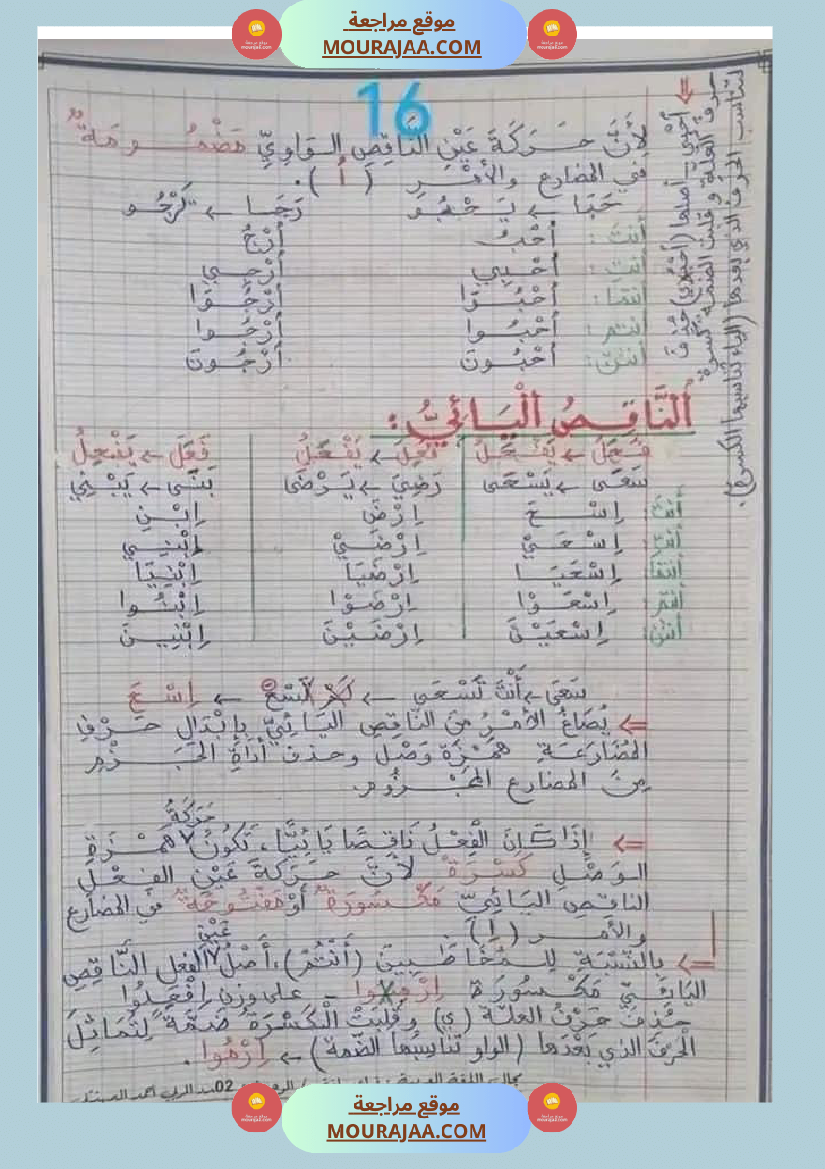 موقع مراجعة
MOURAJAA.COM
16
لِأَنَّ حَرَكَةَ عَيْنِ النَّاقِصِ الوَاوِيِّ مَضْمُومَةٌ
في المضارع والأمْرِ ( اُ ).
حَبَا ← يَحْبُو رَجَا ← يَرْجُو
أَنْتَ : اُحْبُ اُرْجُ
أَنْتِ : اُحْبِي اُرْجِي
أنتما : اُحْبُوَا اُرْجُوَا
أنتم : اُحْبُوا اُرْجُوا
أنتنّ : اُحْبُونَ اُرْجُونَ
اُحْبِي = أصلها (اُحْبُوِي) حُذِفَ
حرف العلّة و قلبت الضمة كسرة
لتناسب الحرف الذي بعدها (الياء تناسبها الكسرة).
النَّاقِصُ الْيَائِيُّ :
فَعَلَ ← يَفْعَلُ فَعِلَ ← يَفْعَلُ فَعَلَ ← يَفْعِلُ
سَعَى ← يَسْعَى رَضِيَ ← يَرْضَى بَنَى ← يَبْنِي
أنتَ اِسْعَ اِرْضَ اِبْنِ
أنتِ اِسْعَيْ اِرْضَيْ اِبْنِي
أنتما اِسْعَيَا اِرْضَيَا اِبْنِيَا
أنتم اِسْعَوْا اِرْضَوْا اِبْنُوا
أنتنّ اِسْعَيْنَ اِرْضَيْنَ اِبْنِينَ
سَعَى ← أَنْتَ تَسْعَى ← لَمْ تَسْعَ ← اِسْعَ
⇐ يُصَاغُ الأَمْرُ مِنَ النَّاقِصِ اليَائِيِّ بِإِبْدَالِ حَرْفِ
المُضَارَعَةِ هَمْزَةَ وَصْلٍ وحذف أَدَاةِ الجَزْمِ
مِنَ المضارع المجْزُومِ.
حَرَكَةُ
⇐ إِذَا كَانَ الْفِعْلُ نَاقِصًا يَائِيًّا، تَكُونُ هَمْزَةِ
الوَصْلِ كَسْرَةً لأَنَّ حَرَكَةَ عَيْنِ الفِعْلِ
الناقصِ اليَائِيِّ مَكْسُورَةٌ أَوْ مَفْتُوحَةٌ في المضارع
والأمر ( اِ ) .
عَيْنِ
⇐ بِالنِّسْبَةِ لِلْمُخَاطَبِينَ (أَنْتُمْ)، أَصْلُ الفعل النَّاقِصِ
اليَائِيِّ مَكْسُورَة اِرْمِيُوا - على وزن اِفْعِلُوا
حُذِفَ حَرْفُ العلّة (ي) وقُلِبَتْ الْكَسْرَةُ ضَمَّةً لِتُمَاثِلَ
الْحَرْفَ الذي بَعْدَهَا (الواو تُنَاسِبُهَا الضّمة) ← اِرْمُوا .
موقع مراجعة
MOURAJAA.COM